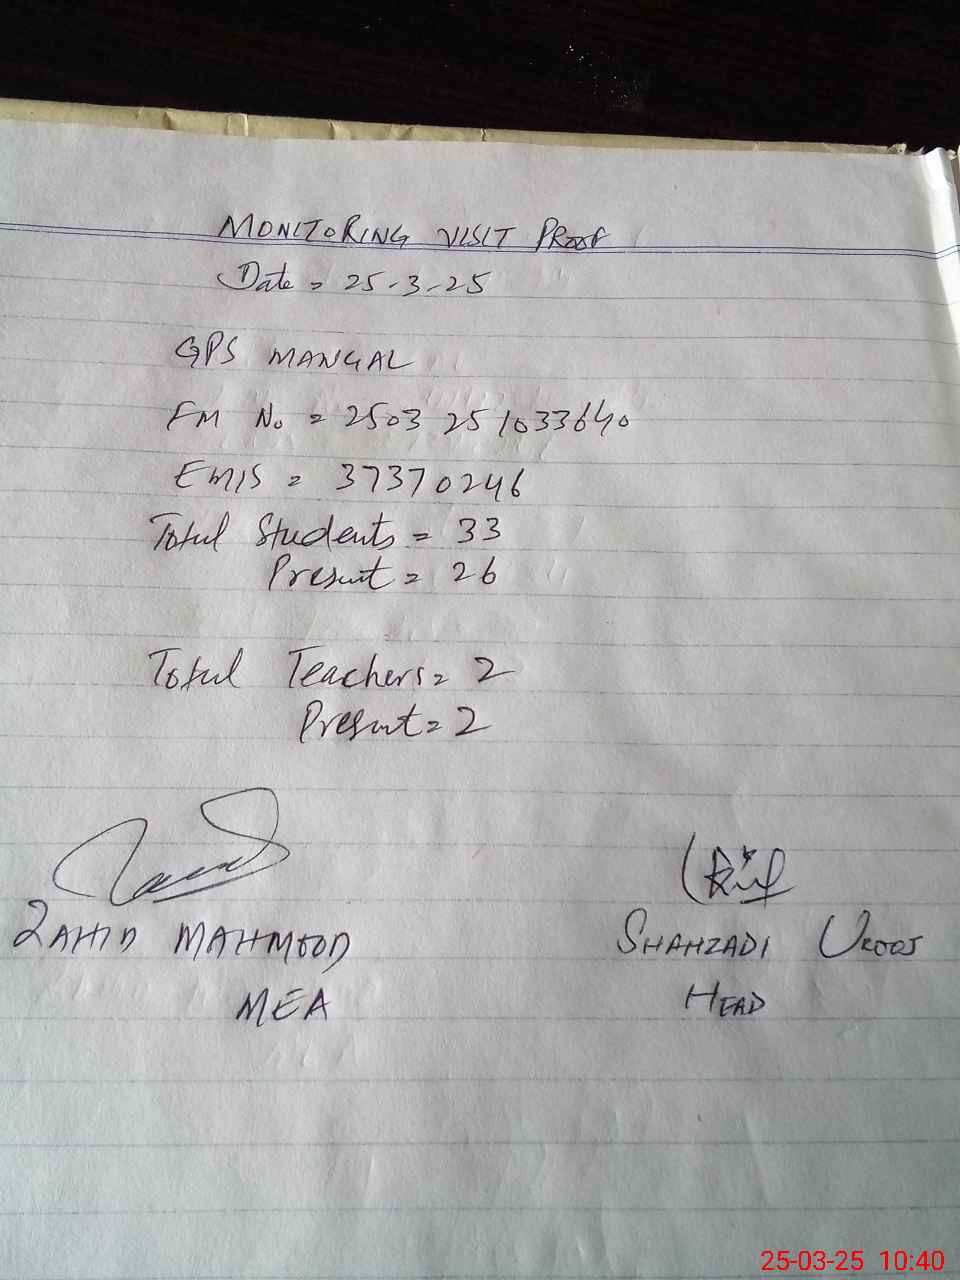 MONITORING VISIT PROOF
Date = 25-3-25
GPS MANGAL
FM No = 2503 251033640
EMIS = 37370246
Total Students = 33
Present = 26
Total Teachers = 2
Present = 2
ZAHID MAHMOOD
SHAHZADI UROOJ
MEA
HEAD
25-03-25 10:40